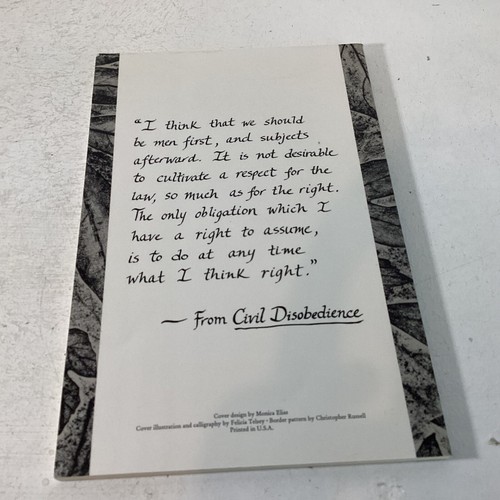 “I think that we should
be men first, and subjects
afterward. It is not desirable
to cultivate a respect for the
law, so much as for the right.
The only obligation which I
have a right to assume,
is to do at any time
what I think right.”
— From Civil Disobedience
Cover design by Monica Elias
Cover illustration and calligraphy by Felicia Telsey • Border pattern by Christopher Russell
Printed in U.S.A.